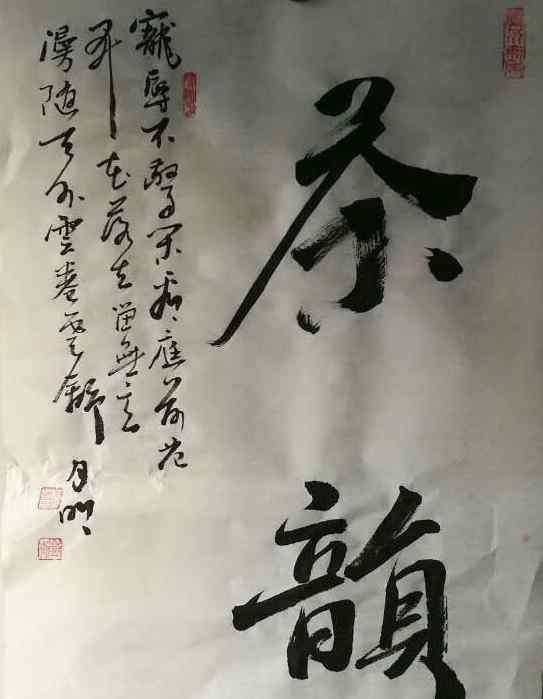 茶韻
寵辱不驚閑看庭前花
開花落去留無意
漫随天外雲卷雲舒
月明